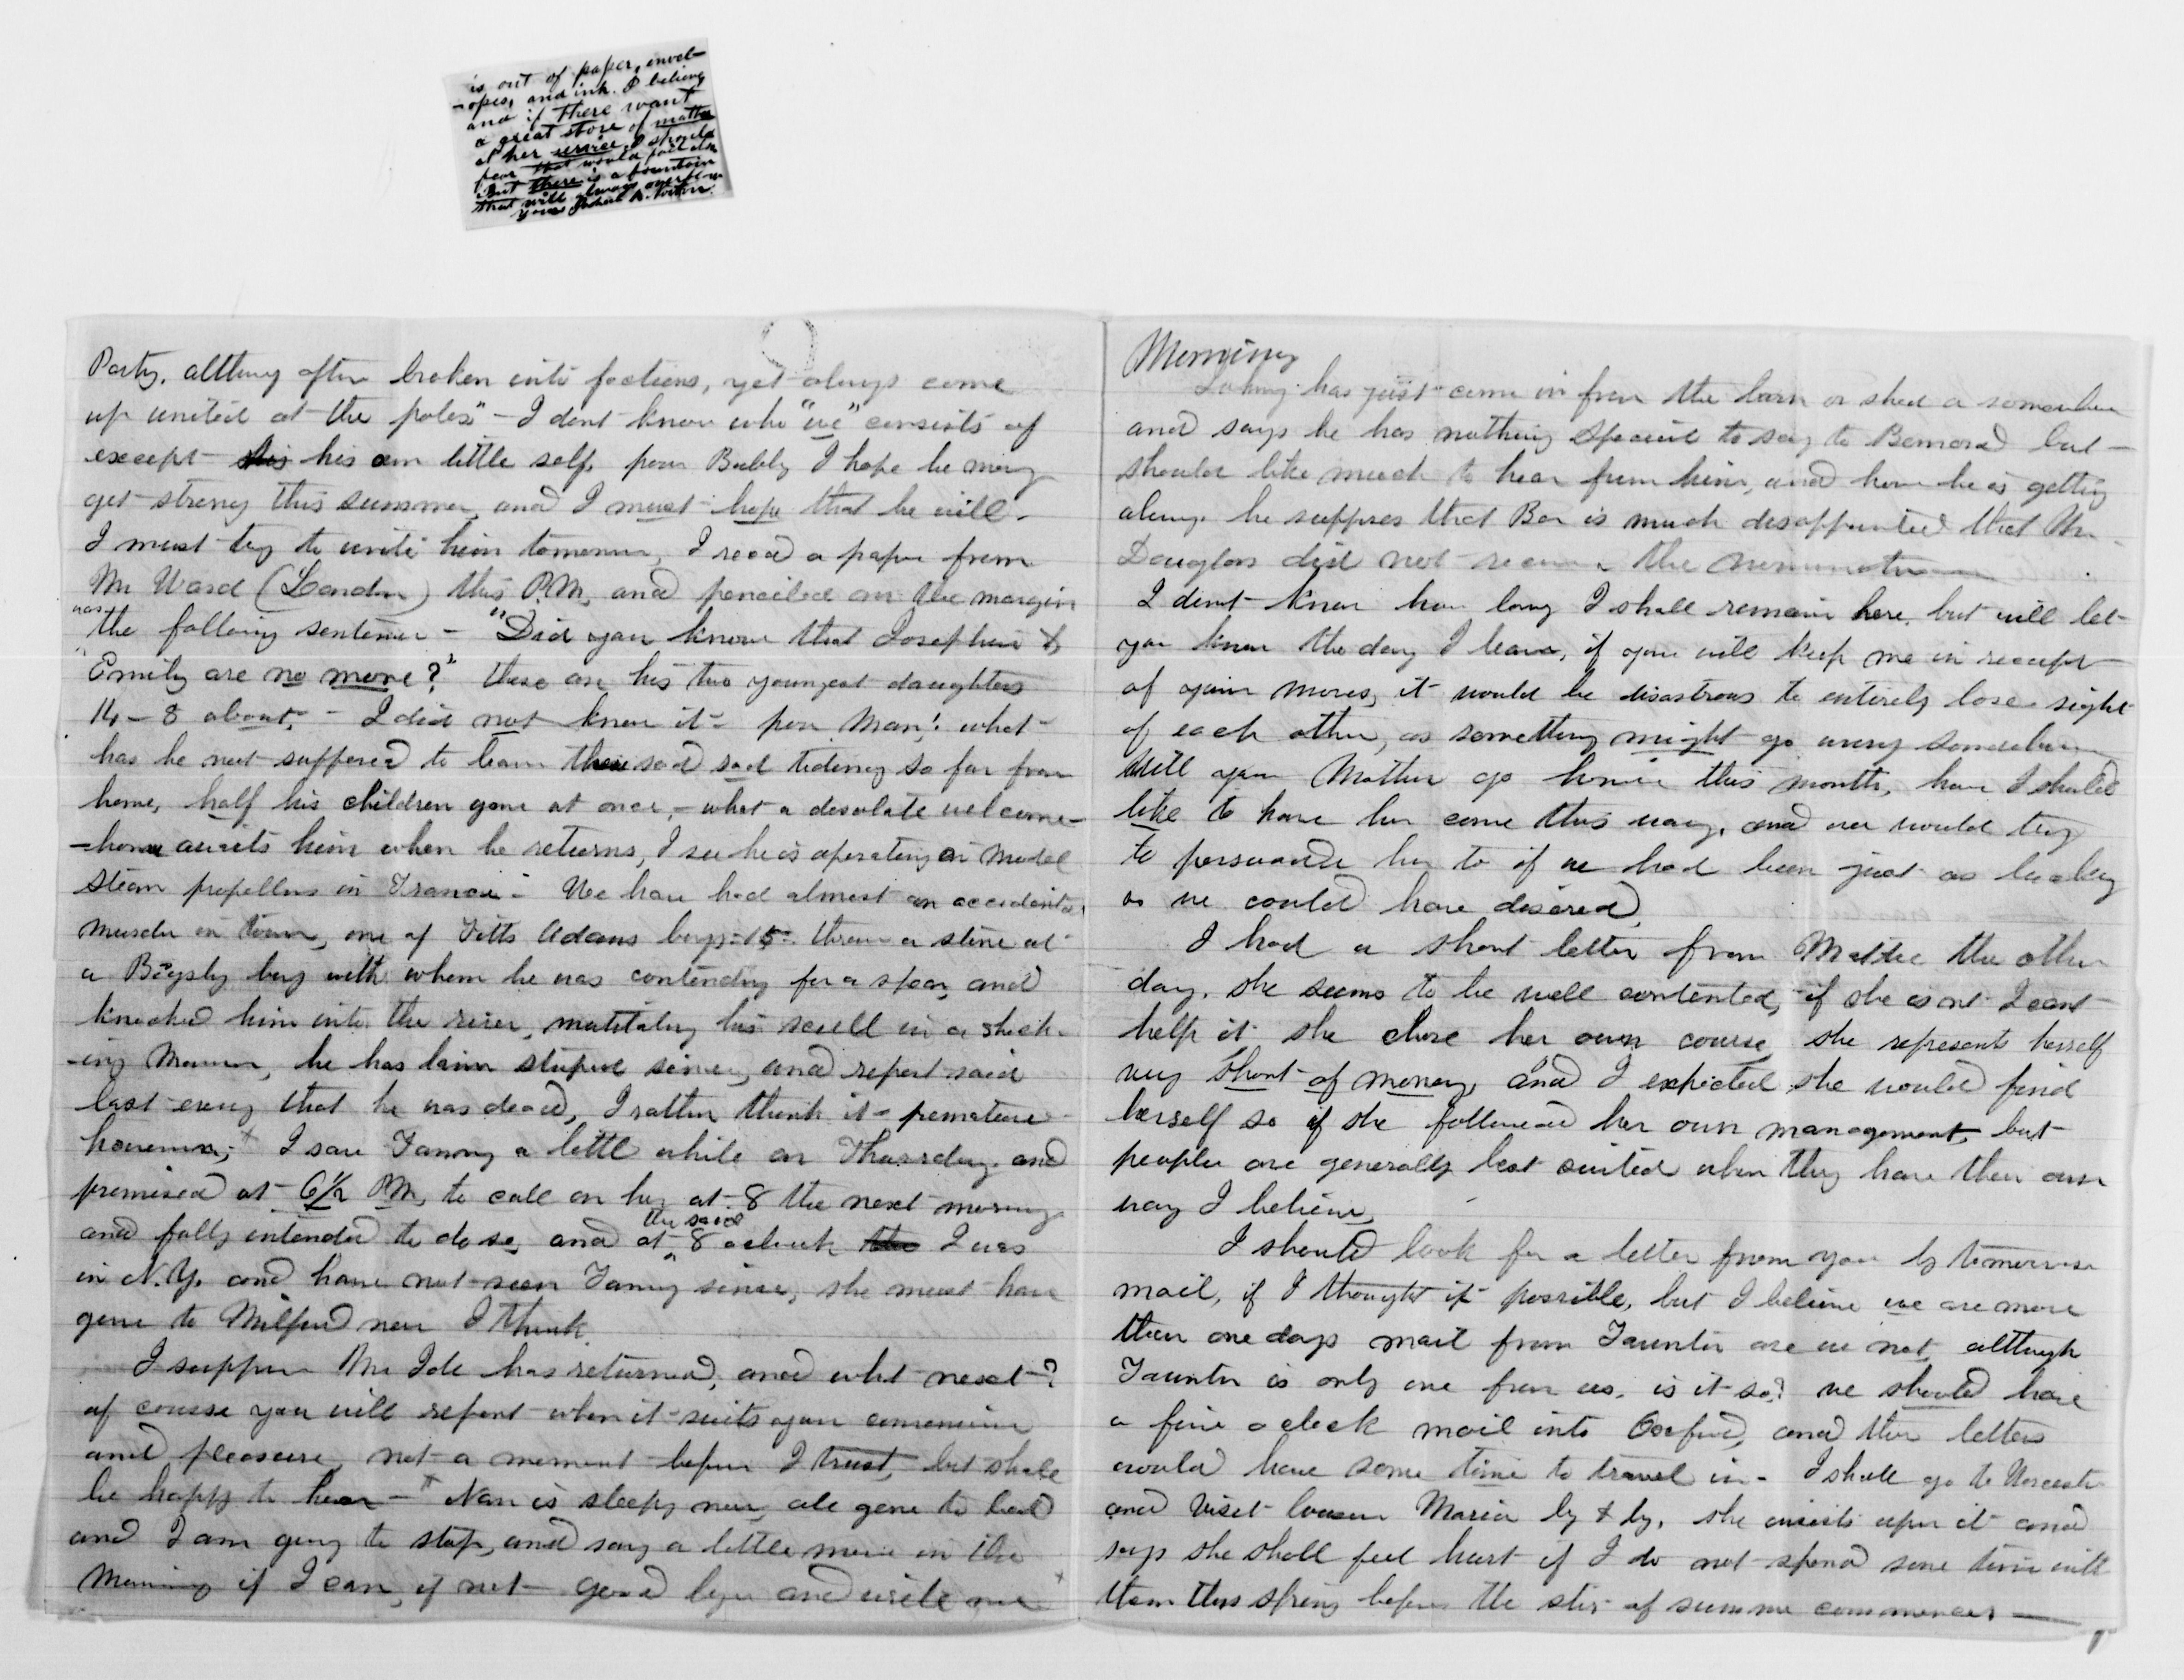 is out of paper, envel-
-opes, and ink. I believe
and if there want
a great store of matter
at her service I should
fear that would fail also
But there is a fountain
that will always overflow
yours
Party, although often broken into factions, yet always come
up united at the poles" - I dont know who "we" consists of
except his his own little self, poor Bubby I hope he may
get strong this summer, and I must hope that he will.
I must try to write him tomorrow, I recd a paper from
Mr Ward (London) this P.M, and penciled on the margin
was the following sentence - "Did you know that Josephine &
"Emily are no more?" these are his two youngest daughters
14 - 8 about, - I did not know it - poor Man! what
has he not suffered to learn these sad sad tidings so far from
home, half his children gone at once, - what a desolate welcome-
-home awaits him when he returns, I see he is operating on model
steam propellers in France - We have had almost an accidental
murder in town, one of Fitts Adams boys - 15 - threw a stone at
a Bigsby boy with whom he was contending for a spear, and
knocked him into the river, mutilating his scull in a shock-
-ing manner, he has lain stupid since, and report said
last eveng that he was dead, I rather think it premature
however, - I saw Fanny a little while on Thursday and
promised at 6½ P.M, to call on her at 8 the next morning
and fully intended to do so, and at the said 8 oclock the I was
in N.Y. and have not seen Fanny since, she must have
gone to Milford now I think.
I suppose Mr Ide has returned, and what next -?
of course you will report when it suits your convenience
and pleasure, not a moment before I trust, but shall
be happy to hear - Nan is sleepy now, all gone to bed
and I am going to stop, and say a little more in the
Morning if I can, if not - good bye and write me
Morning
Johny has just come in from the barn or shed or somewhere
and says he has nothing special to say to Bernard but -
should like much to hear from him, and how he is getting
along. he supposes that Ber is much disappointed that Mr.
Douglass did not receive the nomination
I dont know how long I shall remain here, but will let
you know the day I leave, if you will keep me in receipt
of your moves, it would be disastrous to entirely lose sight
of each other, as something might go wrong somewhere
Will your Mother go home this month, how I should
like to have her come this way, and we would try
to persuade her to if we had been just as lucky
as we could have desired.
I had a short letter from Mattie the other
day, she seems to be well contented, if she is not I cant
help it she chose her own course, she represents herself
very short of money, and I expected she would find
herself so if she followed her own management, but
people are generally best suited when they have their own
way I believe,
I should look for a letter from you by tomorrows
mail, if I thought it possible, but I believe we are more
then one days mail from Taunton are we not, although
Taunton is only one from us. is it so? we should have
a five o clock mail into Oxford, and then letters
would have some time to travel in - I shall go to Worcester
and visit Cousin Maria by & by, she insists upon it and
says she shall feel hurt if I do not spend some time with
them this spring before the stir of summer commences -